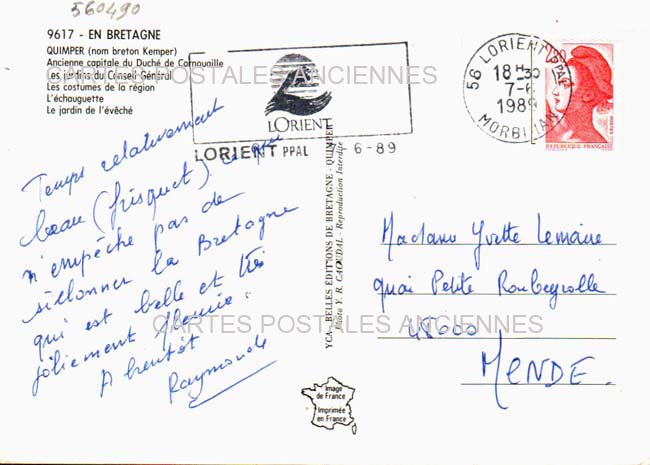 560490
9617 - EN BRETAGNE
QUIMPER (nom breton Kemper)
Ancienne capitale du Duché de Cornouaille
Les jardins du Conseil Général
Les costumes de la région
L'échauguette
Le jardin de l'évêché
CARTES POSTALES ANCIENNES
LORIENT
LORIENT PPAL
6-89
56 LORIENT PPAL
18H30
7-6
1989
MORBIHAN
2,20
POSTES
REPUBLIQUE FRANÇAISE
Temps relativement
beau (frisquet) ce qui
n'empêche pas de
sillonner la Bretagne
qui est belle et très
joliement fleurie.
A bientôt
Raymonde
YCA - BELLES ÉDITIONS DE BRETAGNE - QUIMPER
Photo Y. R. CAOUDAL - Reproduction Interdite
Madame Yvette Lemaire
Quai Petite Roubeyrolle
48000
MENDE.
CARTES POSTALES ANCIENNES
Image
de France
Imprimée
en France